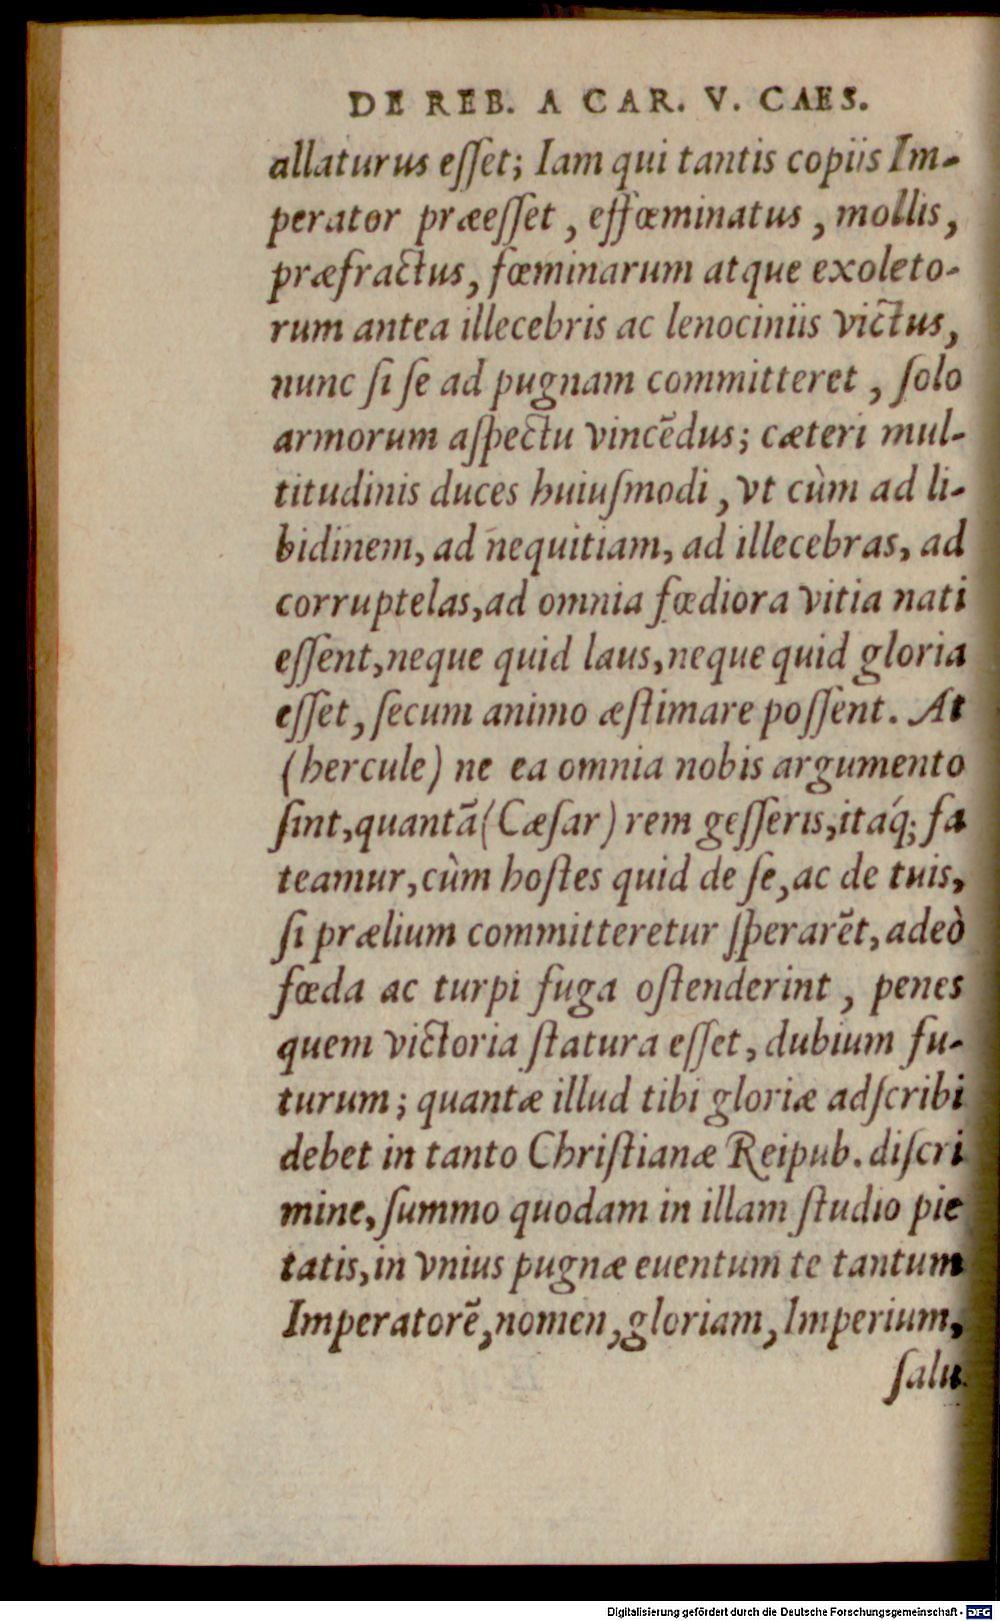 DE REB. A CAR. V. CAES.
allaturus eſſet; Iam qui tantis copiis Im-
perator præeſſet, effœminatus, mollis,
præfractus, fœminarum atque exoleto-
rum antea illecebris ac lenociniis victus,
nunc ſi ſe ad pugnam committeret, ſolo
armorum aſpectu vincẽdus; cæteri mul-
titudinis duces huiuſmodi, vt cùm ad li-
bidinem, ad nequitiam, ad illecebras, ad
corruptelas, ad omnia fœdiora vitia nati
eſſent, neque quid laus, neque quid gloria
eſſet, ſecum animo æſtimare poſſent. At
(hercule) ne ea omnia nobis argumento
ſint, quantã (Cæſar) rem geſſeris, itáq; fa
teamur, cùm hoſtes quid de ſe, ac de tuis,
ſi prælium committeretur ſperarẽt, adeò
fœda ac turpi fuga oſtenderint, penes
quem victoria ſtatura eſſet, dubium fu-
turum; quantæ illud tibi gloriæ adſcribi
debet in tanto Chriſtianæ Reipub. diſcri
mine, ſummo quodam in illam ſtudio pie
tatis, in vnius pugnæ euentum te tantum
Imperatorẽ, nomen, gloriam, Imperium,
ſalu-
Digitalisierung gefördert durch die Deutsche Forschungsgemeinschaft - DFG